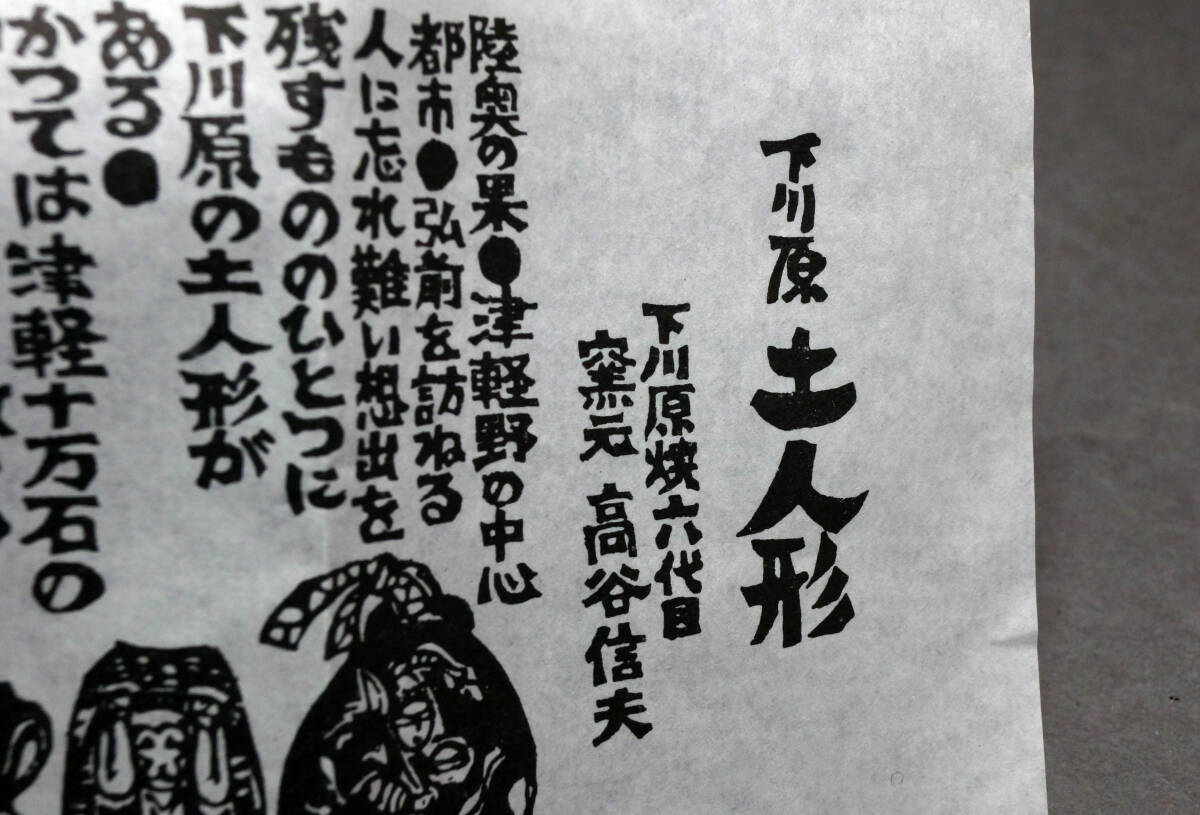 下川原土人形
下川原焼六代目
窯元 高谷信夫
陸奥の果●津軽野の中心
都市●弘前を訪ねる
人に忘れ難い想出を
残すもののひとつに
下川原の土人形が
ある●
かつては津軽十万石の